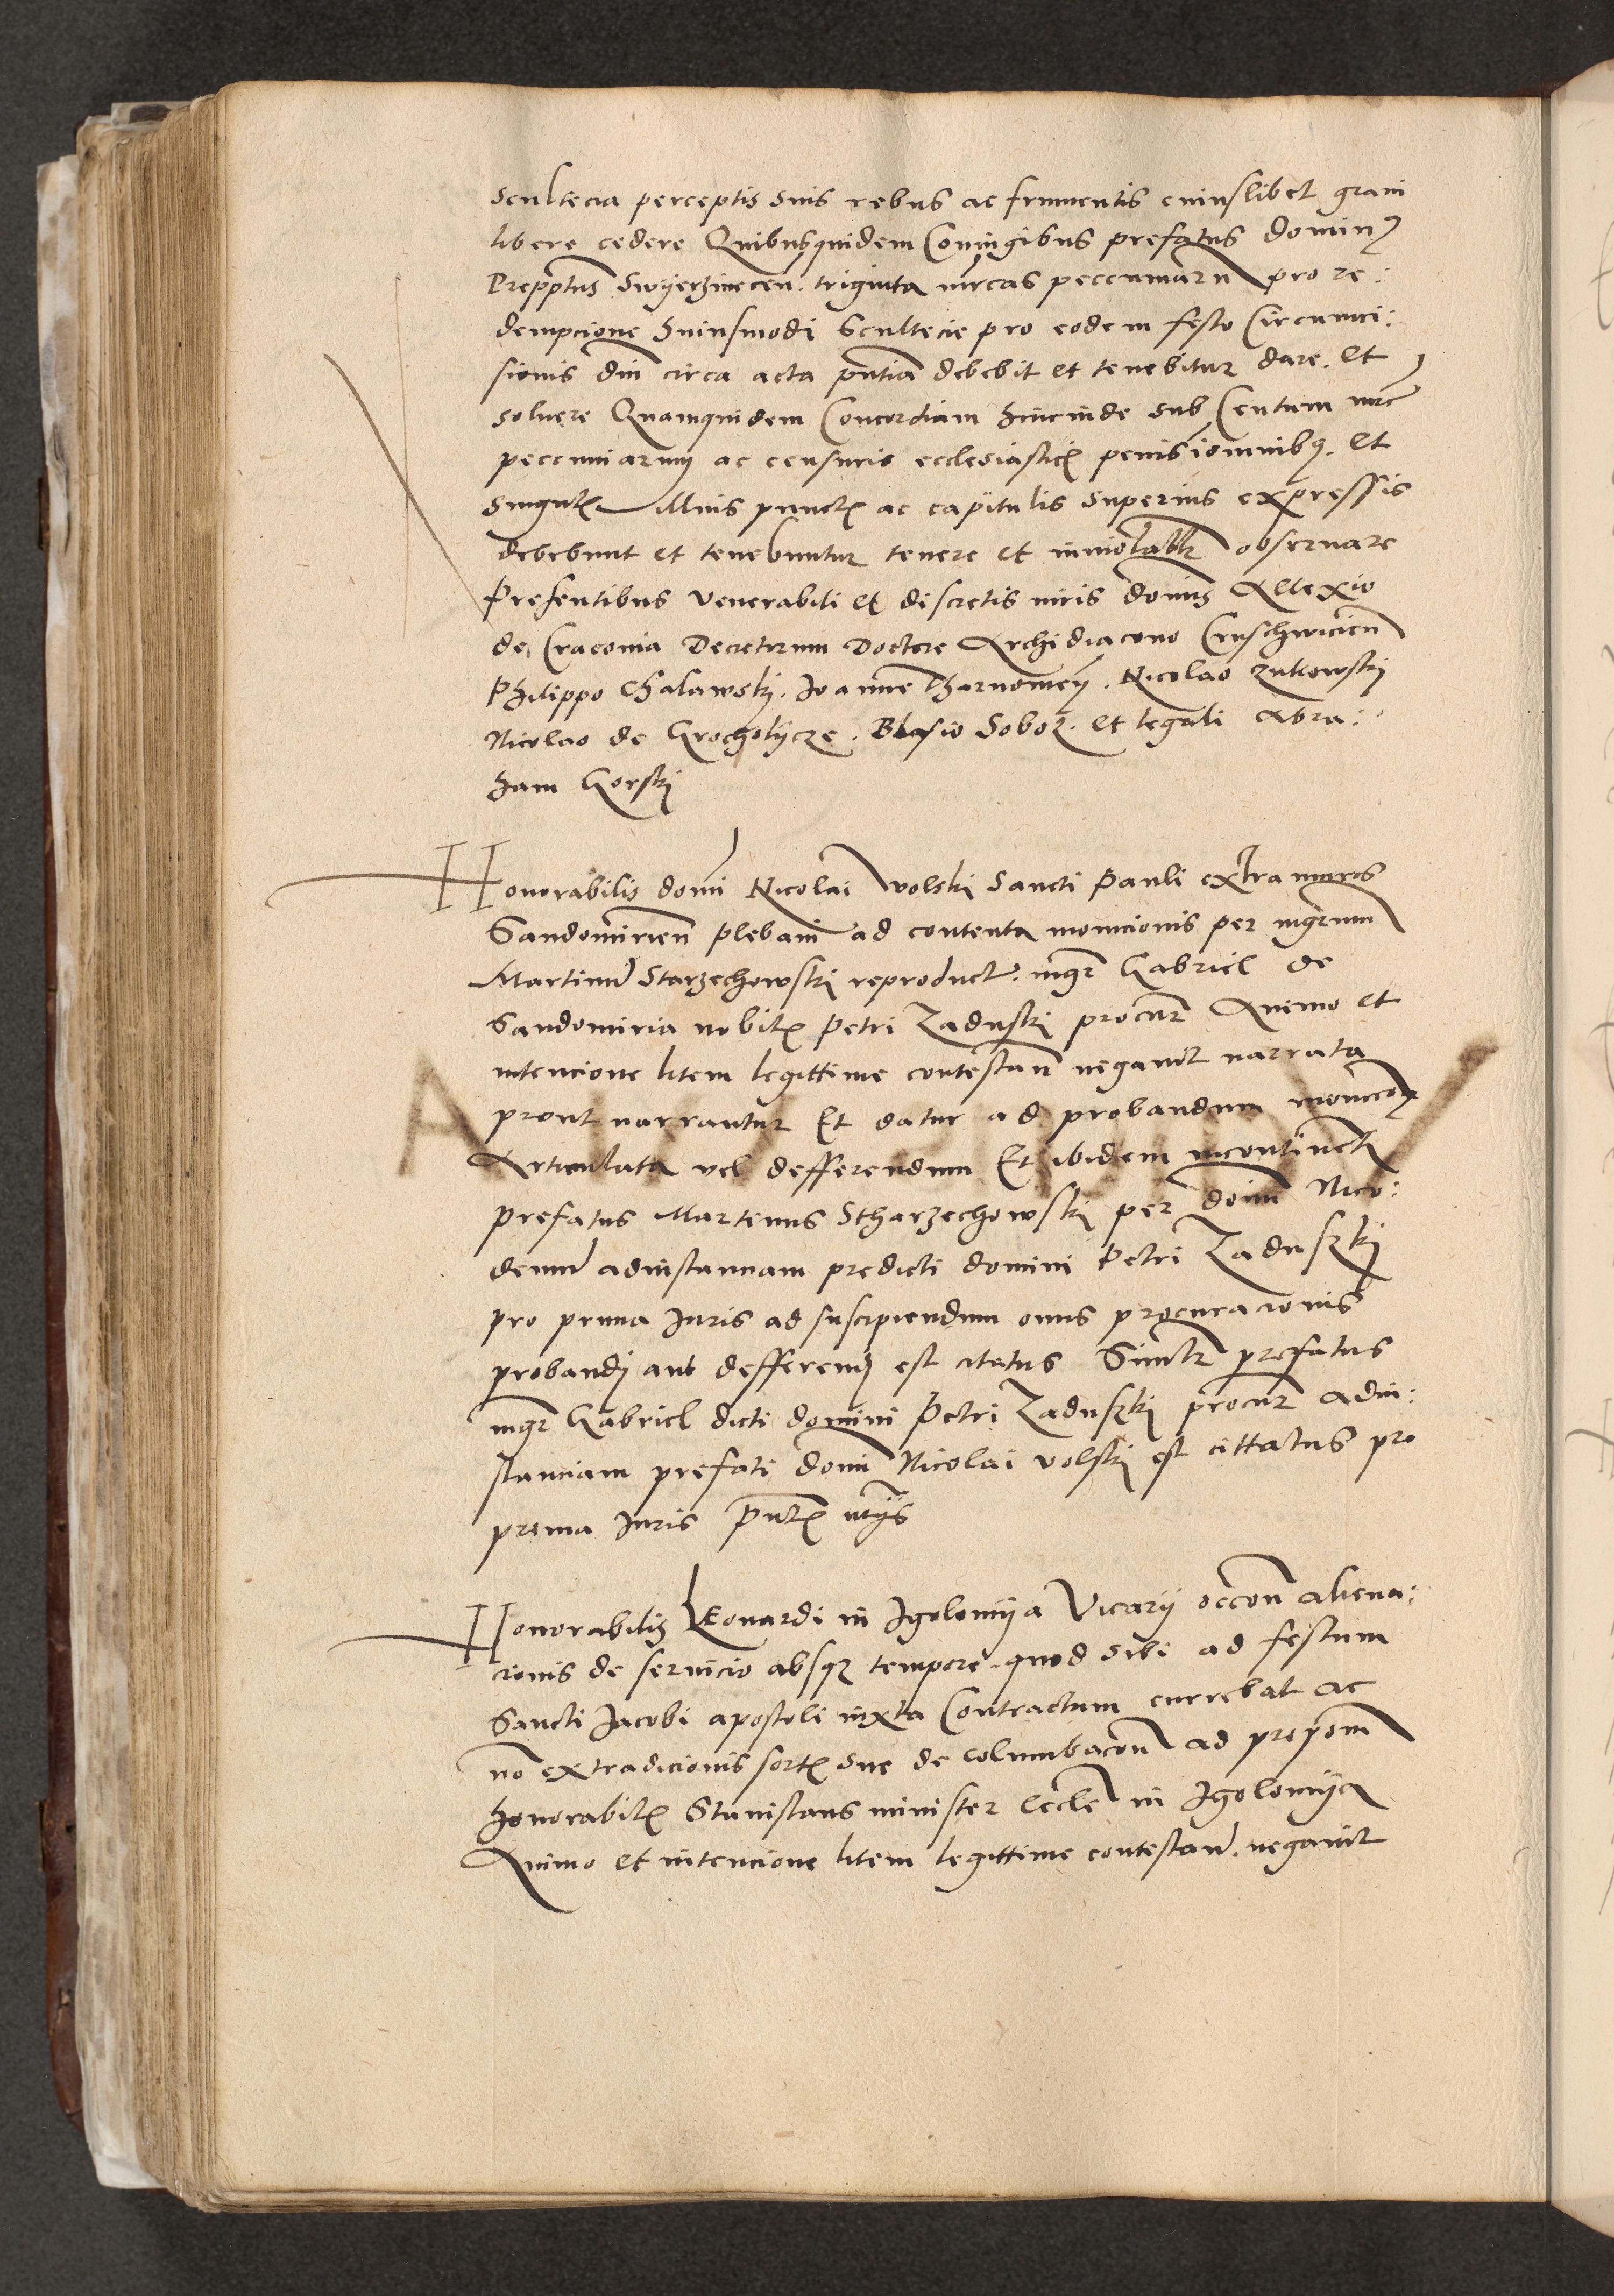 scultecia perceptis suis rebus ac frumentis cuiuslibet grani
libere cedere Quibusquidem Coniugibus prefatus dominus
Prepptus Swyerzinecen. triginta mrcas peccuniaru pro re:
dempcione huiusmodi Scultecie pro eodem festo Circumci:
sionis dni circa acta pntia debebit et tenebitur dare. et
soluere Quamquidem Concordiam hincinde sub Centum mrc
peccuniarum ac censuris ecclesiastic penis in omnibus. et
singulis illius punctis ac capitulis superius expressis
debebunt et tenebuntur tenere et inuiolablr obseruare
Presentibus venerabili et discretis viris dominis Allexio
de Cracouia Decretorum Doctore Archidiacono Cruschwicien
Philippo Chalawski. Joanne Tharnowicy. Nicolao Zukowski
Nicolao de Grocholycze. Blasio Sobol. et legali Abra:
ham Gorski
Honorabilis domi Nicolai Wolski Sancti Pauli extra muros
Sandomirien plebani ad contenta monicionis per mgrum
Martinum Starzechowski reproduct. mgr Gabriel de
Sandomiria nobilis Petri Zaduski procur Animo et
intencione litem legittime contestan negauit narrata
prout narrantur Et datur ad probandum moniccois
Articulata vel defferendum Et ibidem incontinenti
prefatus Martinus Stharzechowski per dnm Nico:
demum ad instanciam predicti domini Petri Zaduszki
pro prima Juris ad suscipiendum onus procuracionis
probandi aut defferendi est citatus Similr prefatus
mgr Gabriel dicti domini Petri Zaduszki procur ad in:
stanciam prefati domi Nicolai volski est cittatus pro
prima Juris pntibus vtys
Honorabilis Leonardi in Jgolomya Vicarii occon aliena:
cionis de seruicio absque tempore quod sibi ad festum
Sancti Jacobi apostoli iuxta Contractum currebat ac
no extradicionis sortis sue de columbacon ad propom
honorabilis Stanislaus minister eccle in Jgolomya
Animo et intencione litem legittime contestan. negauit